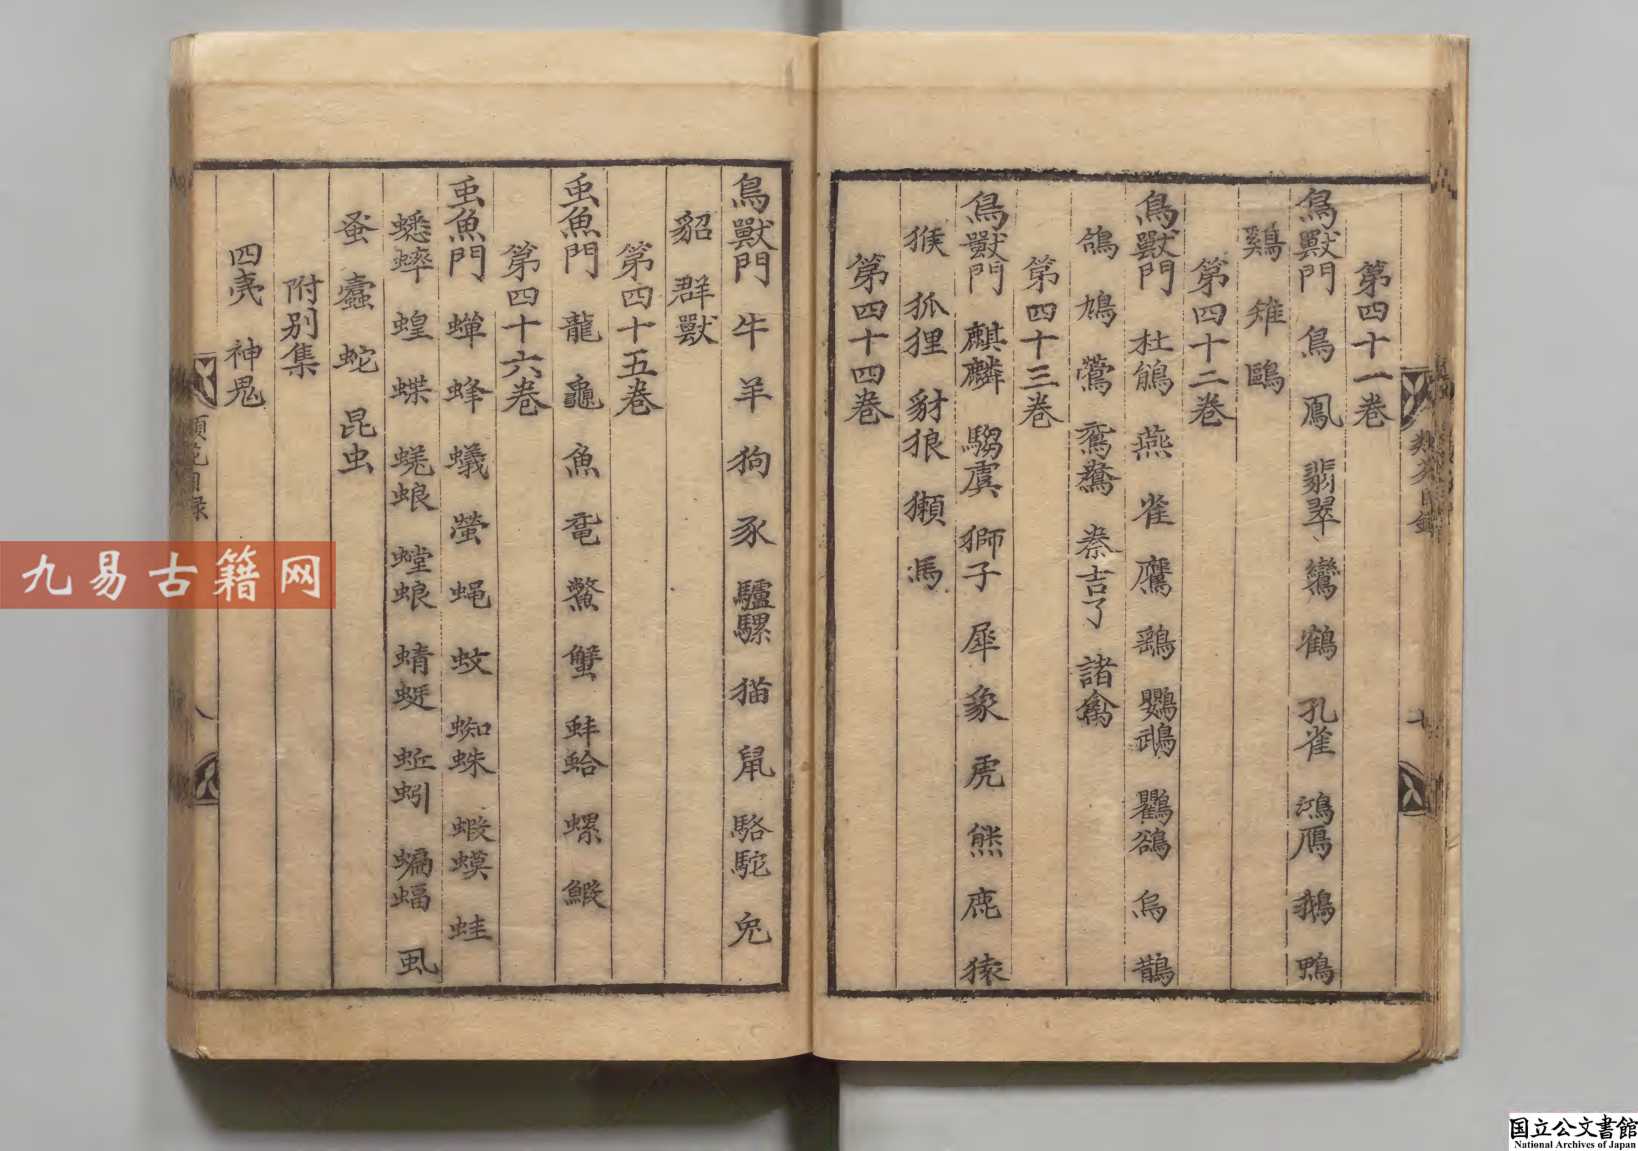 第四十一卷
鳥獸門 鳥 鳳 翡翠 鸞 鶴 孔雀 鴻鴈 鵝 鴨
鷄 雉 鷗
第四十二卷
鳥獸門 杜鵑 燕 雀 鷹 鷂 鸚鵡 鸜鵒 烏 鵲
鴿 鳩 鶯 鴛鴦 秦吉了 諸禽
第四十三卷
鳥獸門 麒麟 騶虞 獅子 犀 象 虎 熊 鹿 猿
猴 狐狸 豺狼 獺 馬
第四十四卷
鳥獸門 牛 羊 狗 豕 驢騾 猫 鼠 駱駝 兔
貂 群獸
第四十五卷
虫魚門 龍 龜 魚 黿 鱉 蟹 蚌蛤 螺 鰕
第四十六卷
虫魚門 蟬 蜂 蟻 螢 蝇 蚊 蜘蛛 蝦蟆 蛙
蟋蟀 蝗 蝶 蜣蜋 螳蜋 蜻蜓 蚯蚓 蝙蝠 虱
蚤 蠹 蛇 昆虫
附別集
四夷 神鬼
類苑目錄
九易古籍网
国立公文書館
National Archives of Japan